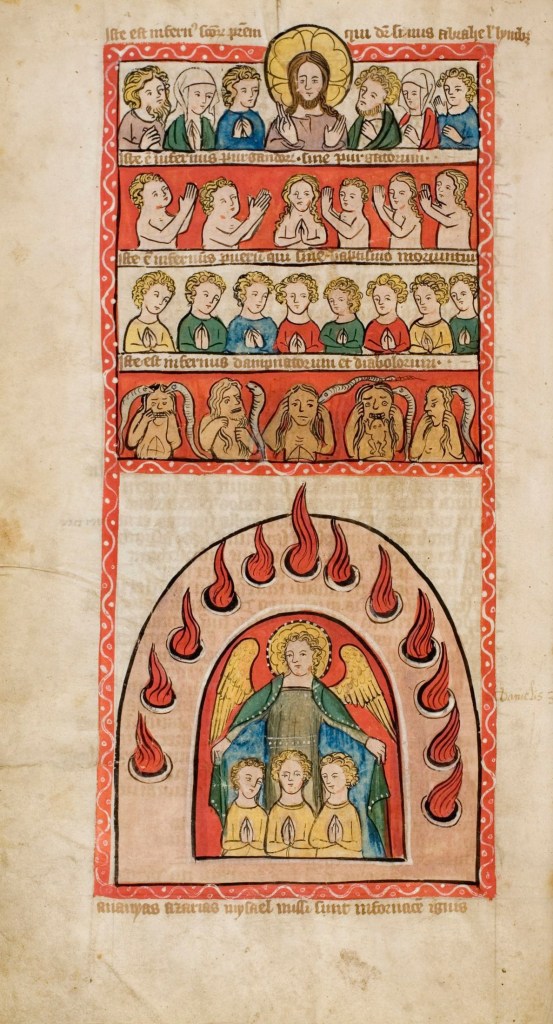 Iste est infernus sanctorum patrum qui dicitur sinus abrahe vel lymbus
Iste est infernus purgandorum siue purgatorium
Iste est infernus puerorum qui sine baptismo moriuntur
Iste est infernus dampnatorum et diabolorum
ananyas azarias mysael missi sunt in fornacem ignis
Danielis 3